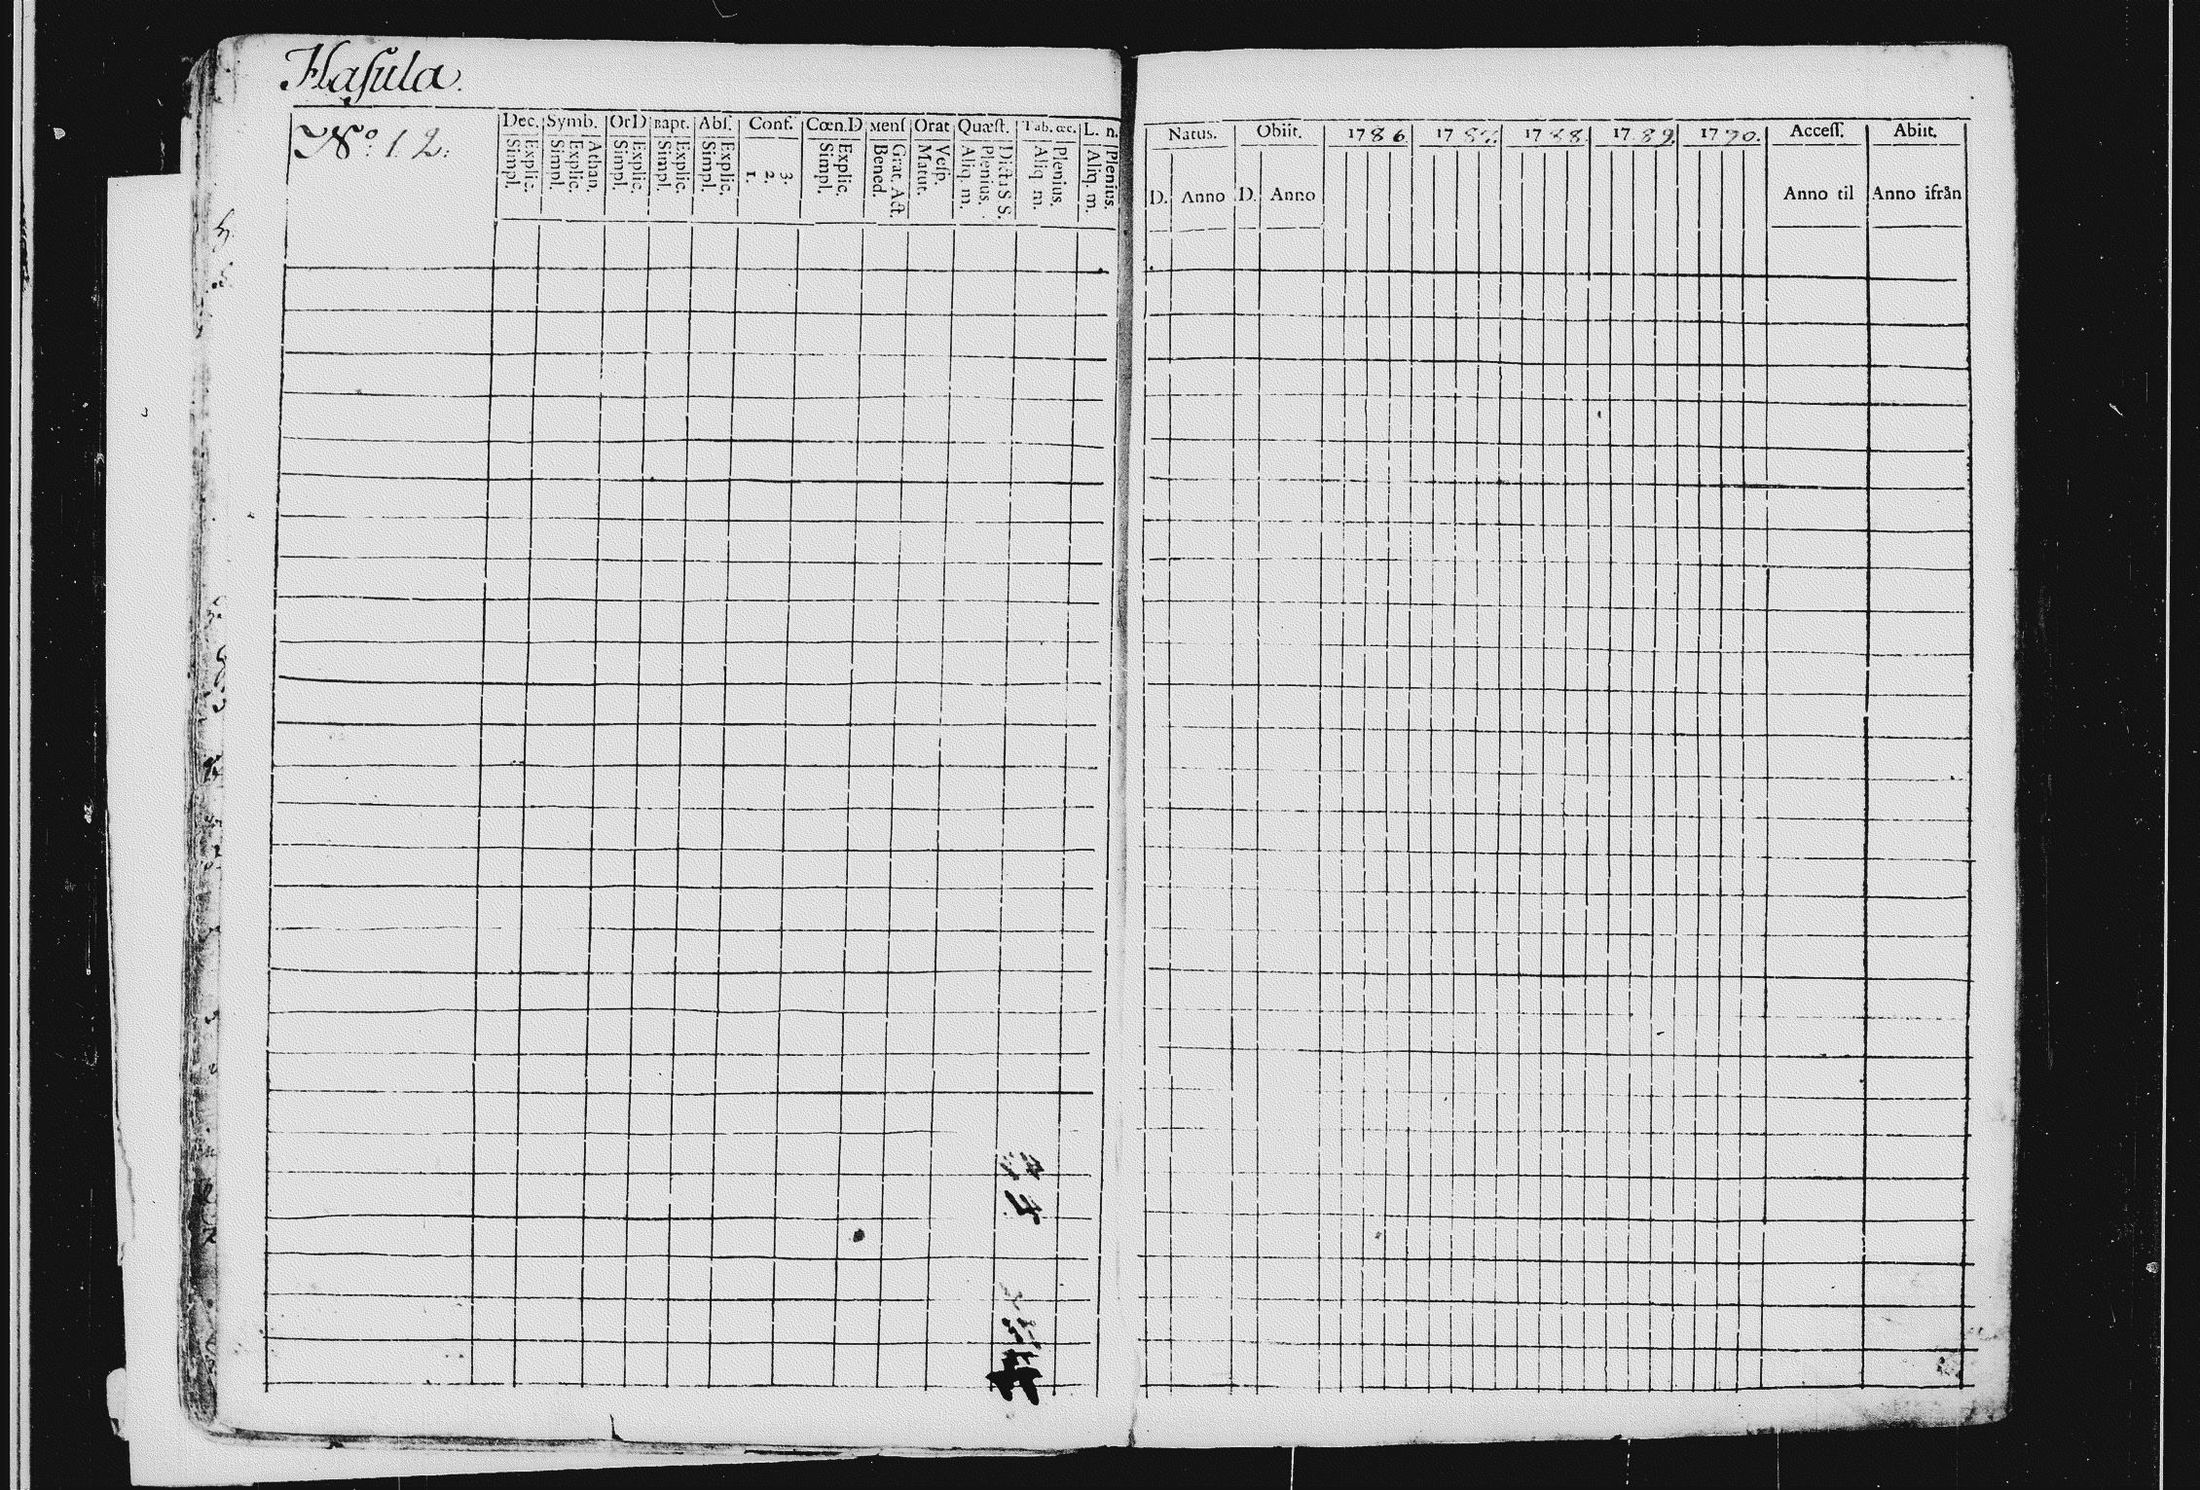 Haſula.
N:o 12.
Dec. Symb. OrD Bapt. Abſ. Conf. Cœn.D Menſ Orat Quæſt. Tab. œc. L. n.
Explic. Simpl. Athan. Explic. Simpl. Explic. Simpl. Explic. Simpl. Explic. Simpl. 3. 2. 1. Explic. Simpl. Grat. Act. Bened. Veſp. Matut. Dicta S S. Plenius. Aliq. m. Plenius. Aliq. m. Plenius. Aliq. m.
Natus. Obiit. 1786. 1787. 1788. 1789. 1790. Acceſſ. Abiit.
D. Anno D. Anno Anno til Anno ifrån